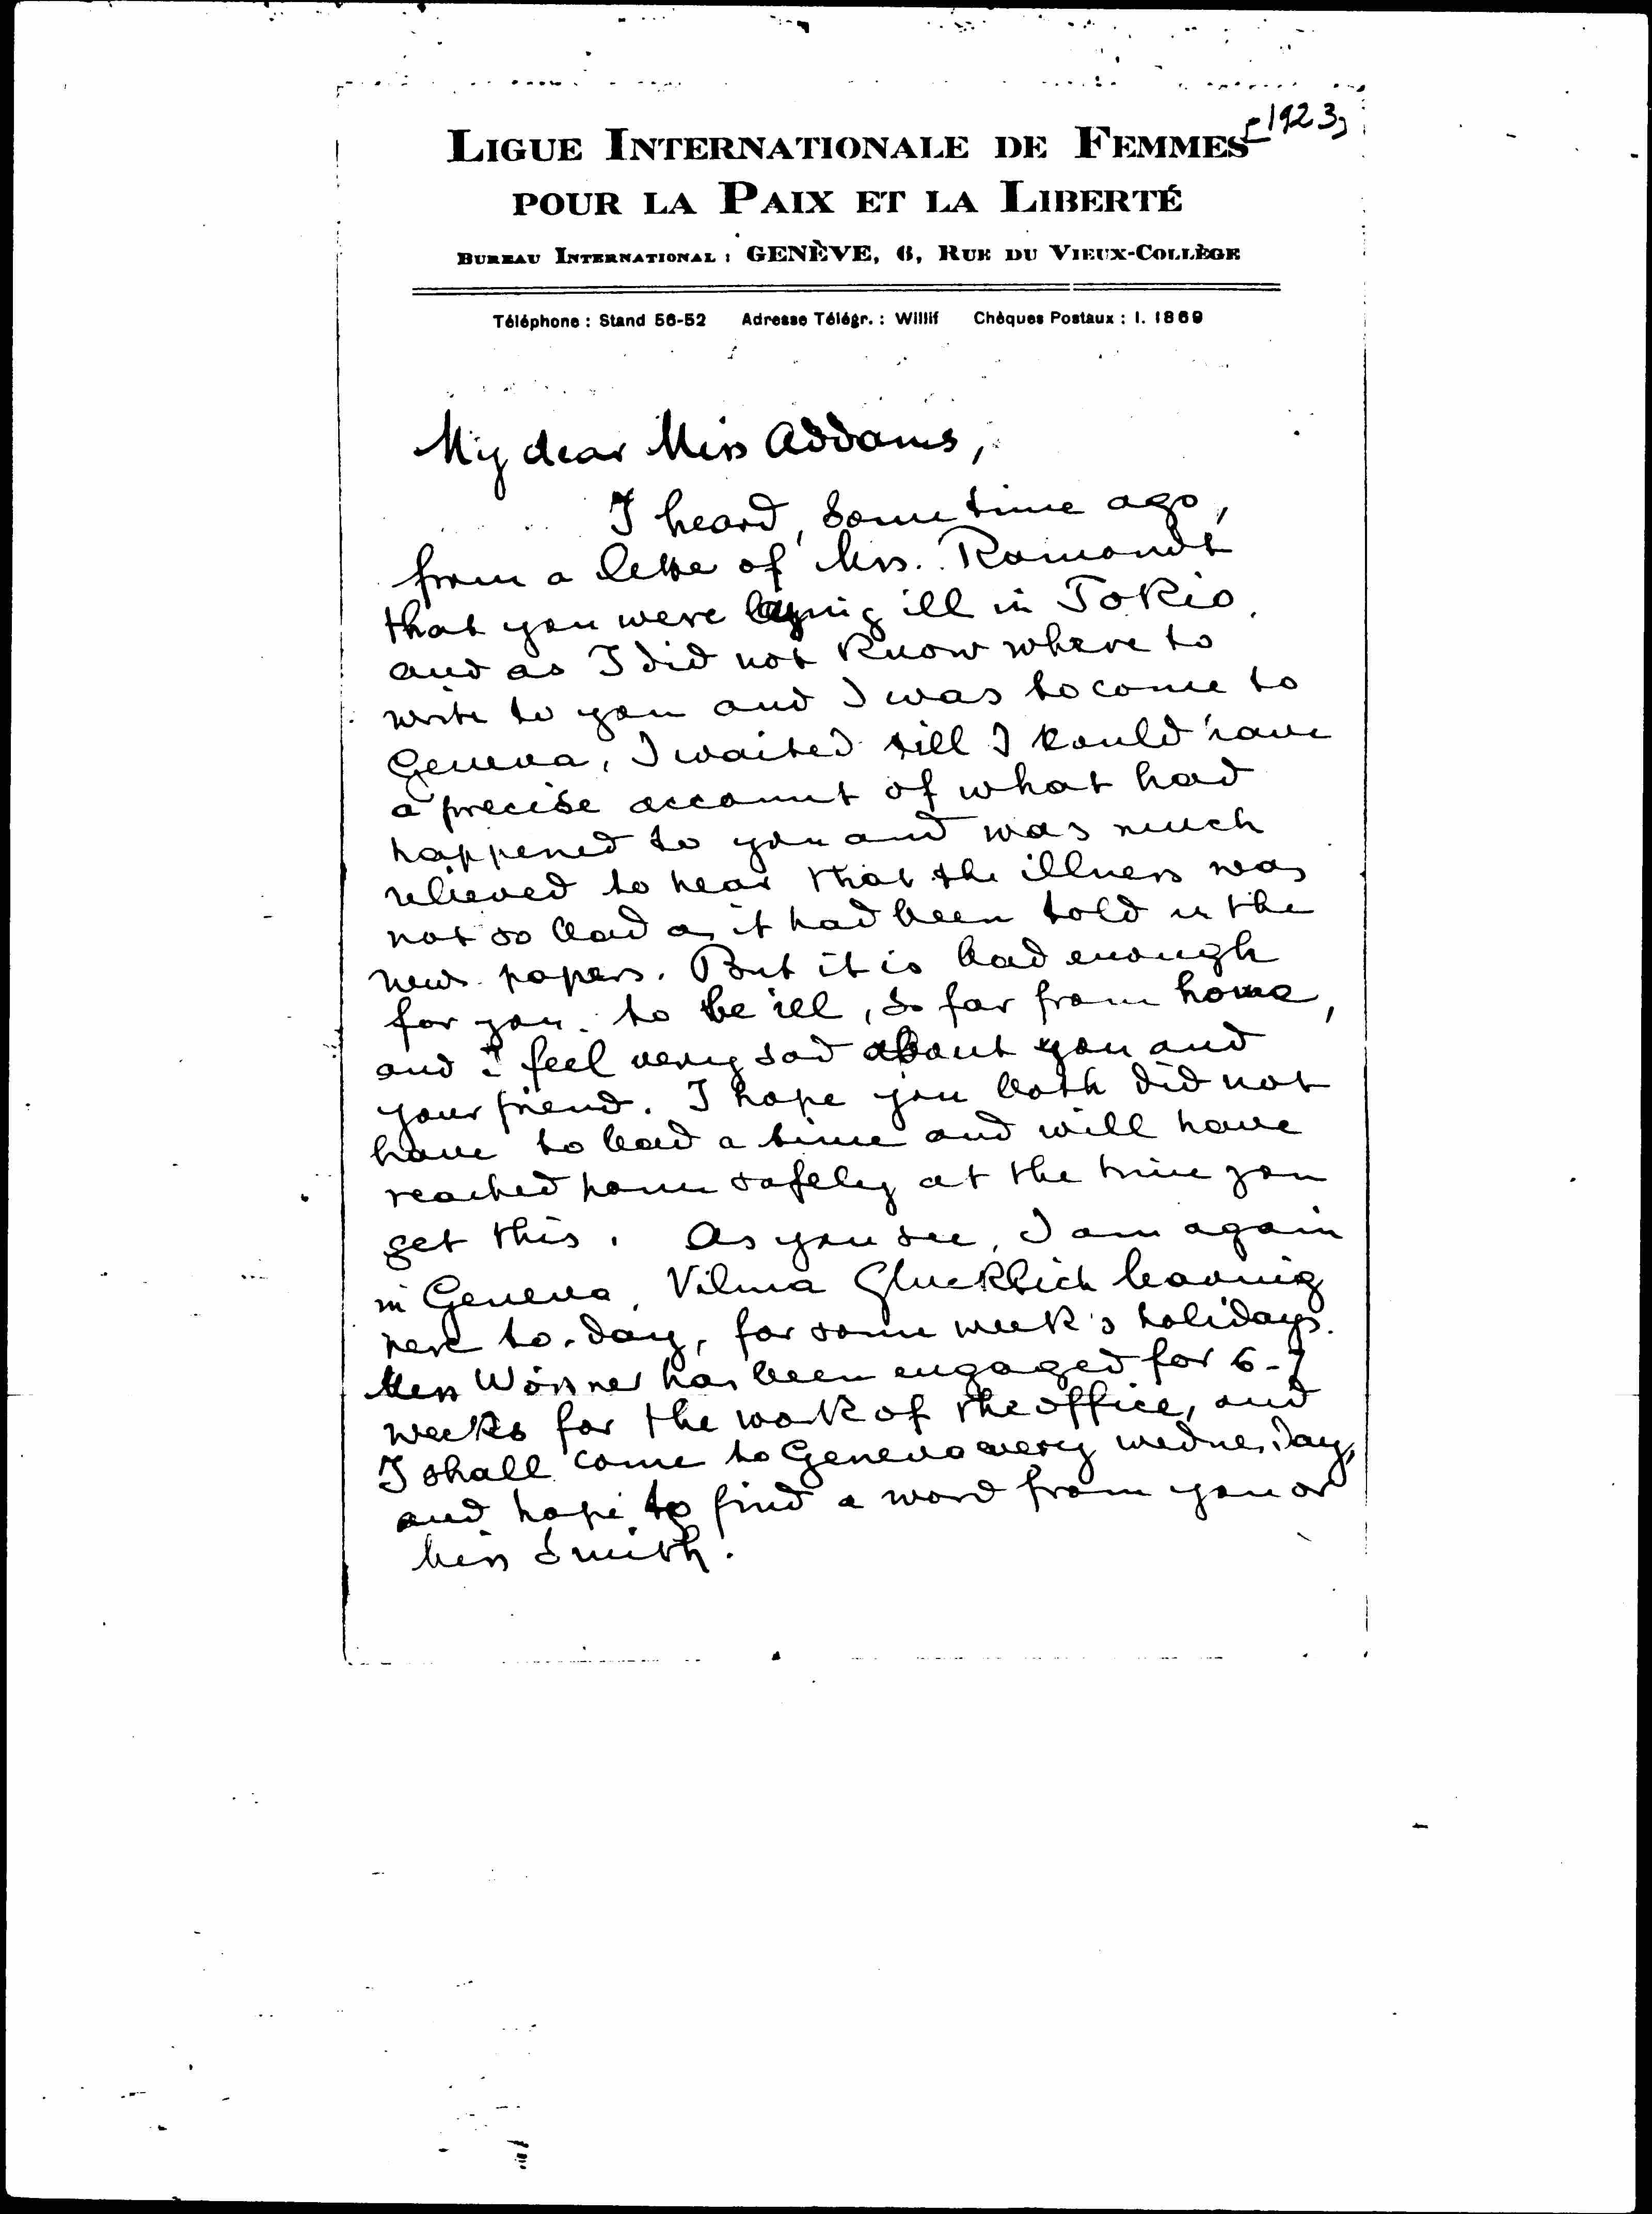 [1923]
LIGUE INTERNATIONALE DE FEMMES
POUR LA PAIX ET LA LIBERTÉ
BUREAU INTERNATIONAL : GENÈVE, 6, RUE DU VIEUX-COLLÈGE
Téléphone : Stand 56-52 Adresse Télégr. : Willif Chèques Postaux : I. 1869
My dear Miss Addams,
I heard, some time ago,
from a letter of Mrs. Ramondt
that you were laying ill in Tokio.
and as I did not know where to
write to you and I was to come to
Geneva, I waited till I kould have
a precise account of what had
happened to you and was much
relieved to hear that the illness was
not so bad as it had been told in the
news papers. But it is bad enough
for you to be ill, so far from home,
and I feel very sad about you and
your friend. I hope you both did not
have to bad a time and will have
reached home safely at the time you
get this. As you see, I am again
in Geneva, Vilma Glucklich leaving
here to-day, for some week's holidays.
Miss Wössner has been engaged for 6-7
weeks for the work of the office, and
I shall come to Geneva every wednesday,
and hope to find a word from you or
Miss Smith.